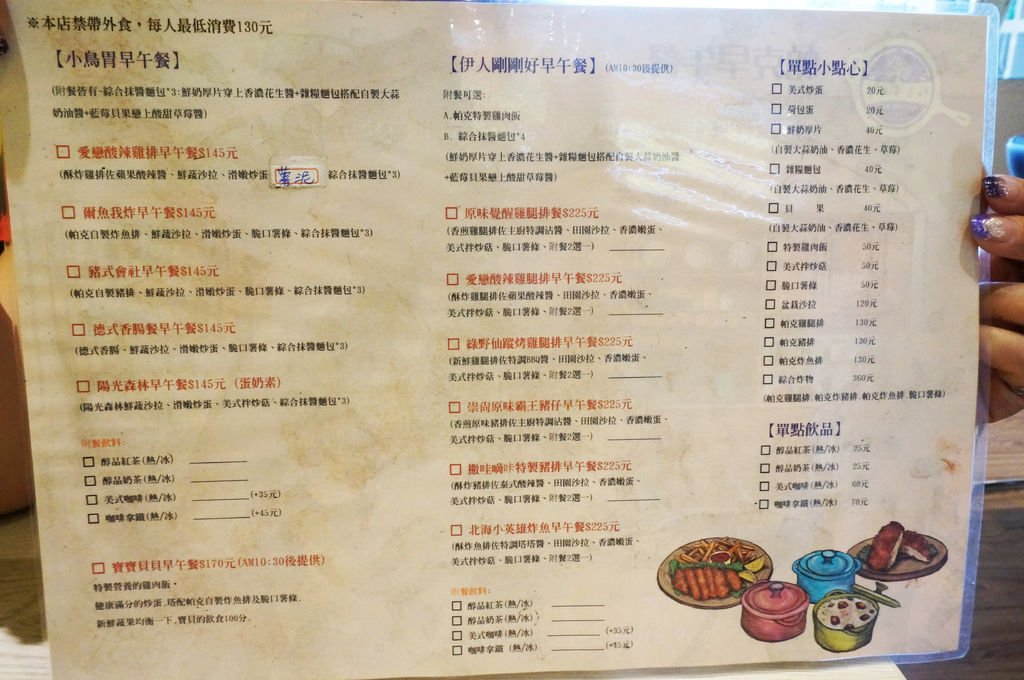 ※本店禁帶外食，每人最低消費130元
【小鳥胃早午餐】
(附餐皆有-綜合抹醬麵包*3:鮮奶厚片穿上香濃花生醬+雜糧麵包搭配自製大蒜
奶油醬+藍莓貝果戀上酸甜草莓醬)
愛戀酸辣雞排早午餐$145元
(酥炸雞排佐蘋果酸辣醬、鮮蔬沙拉、滑嫩炒蛋 薯泥 綜合抹醬麵包*3)
爾魚我炸早午餐$145元
(帕克自製炸魚排、鮮蔬沙拉、滑嫩炒蛋、脆口薯條、綜合抹醬麵包*3)
豬式會社早午餐$145元
(帕克自製豬排、鮮蔬沙拉、滑嫩炒蛋、脆口薯條、綜合抹醬麵包*3)
德式香腸餐早午餐$145元
(德式香腸、鮮蔬沙拉、滑嫩炒蛋、脆口薯條、綜合抹醬麵包*3)
陽光森林早午餐$145元 (蛋奶素)
(陽光森林鮮蔬沙拉、滑嫩炒蛋、美式拌炒菇、綜合抹醬麵包*3)
附餐飲料:
醇品紅茶(熱/冰)
醇品奶茶(熱/冰)
美式咖啡(熱/冰) (+35元)
咖啡拿鐵(熱/冰) (+45元)
寶寶貝貝早午餐$170元(AM10:30後提供)
特製營養的雞肉飯，
健康滿分的炒蛋.搭配帕克自製炸魚排及脆口薯條.
新鮮蔬果均衡一下.寶貝的飲食100分.
【伊人剛剛好早午餐】(AM10:30後提供)
附餐可選:
A.帕克特製雞肉飯
B. 綜合抹醬麵包*4
(鮮奶厚片穿上香濃花生醬+雜糧麵包搭配自製大蒜奶油醬
+藍莓貝果戀上酸甜草莓醬)
原味覺醒雞腿排餐$225元
(香煎雞腿排佐主廚特調沾醬、田園沙拉、香濃嫩蛋、
美式拌炒菇、脆口薯條、附餐2選一)
愛戀酸辣雞腿排早午餐$225元
(酥炸雞腿排佐蘋果酸辣醬、田園沙拉、香濃嫩蛋、
美式拌炒菇、脆口薯條、附餐2選一)
綠野仙蹤烤雞腿排早午餐$225元
(新鮮雞腿排佐特調BBQ醬、田園沙拉、香濃嫩蛋、
美式拌炒菇、脆口薯條、附餐2選一)
崇尚原味霸王豬仔早午餐$225元
(香煎原味豬排佐主廚特調沾醬、田園沙拉、香濃嫩蛋、
美式拌炒菇、脆口薯條、附餐2選一)
撒哇嘀咔特製豬排早午餐$225元
(酥炸豬排佐泰式酸辣醬、田園沙拉、香濃嫩蛋、
美式拌炒菇、脆口薯條、附餐2選一)
北海小英雄炸魚早午餐$225元
(酥炸魚排佐特調塔塔醬、田園沙拉、香濃嫩蛋、
美式拌炒菇、脆口薯條、附餐2選一)
附餐飲料:
醇品紅茶(熱/冰)
醇品奶茶(熱/冰)
美式咖啡(熱/冰) (+35元)
咖啡拿鐵 (熱/冰) (+45元)
【單點小點心】
美式炒蛋 20元
荷包蛋 20元
鮮奶厚片 40元
(自製大蒜奶油、香濃花生、草莓)
雜糧麵包 40元
(自製大蒜奶油、香濃花生、草莓)
貝 果 40元
(自製大蒜奶油、香濃花生、草莓)
特製雞肉飯 50元
美式拌炒菇 50元
脆口薯條 50元
盆栽沙拉 120元
帕克雞腿排 130元
帕克豬排 130元
帕克炸魚排 130元
綜合炸物 360元
(帕克雞腿排.帕克炸豬排.帕克炸魚排.脆口薯條)
【單點飲品】
醇品紅茶(熱/冰) 25元
醇品奶茶(熱/冰) 25元
美式咖啡(熱/冰) 60元
咖啡拿鐵(熱/冰) 70元